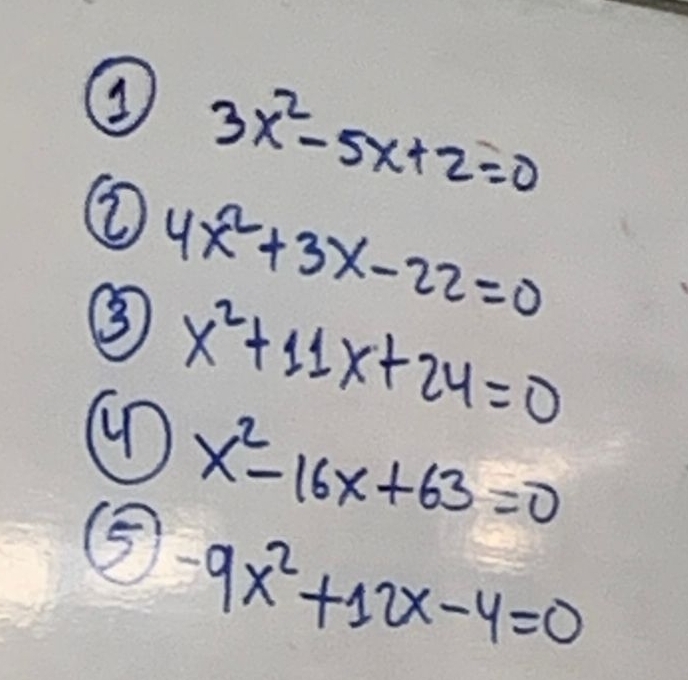 ① 3x²-5x+2=0
② 4x²+3x-22=0
③ x²+11x+24=0
④ x²-16x+63=0
⑤ -9x²+12x-4=0